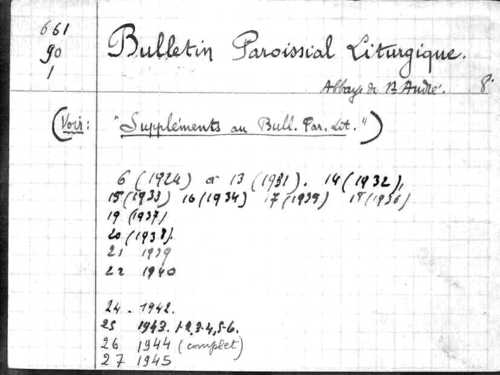 661
90
1
Bulletin Paroissial Liturgique.
Abbaye de St André. 8°
(Voir: "Suppléments au Bull. Par. Lit.")
6 (1924) à 13 (1931). 14 (1932),
15 (1933) 16 (1934) 17 (1935) 18 (1936)
19 (1937)
20 (1938).
21 1939
22 1940
24 - 1942.
25 1943. 1-2.3-4,5-6.
26 1944 (complet)
27 1945